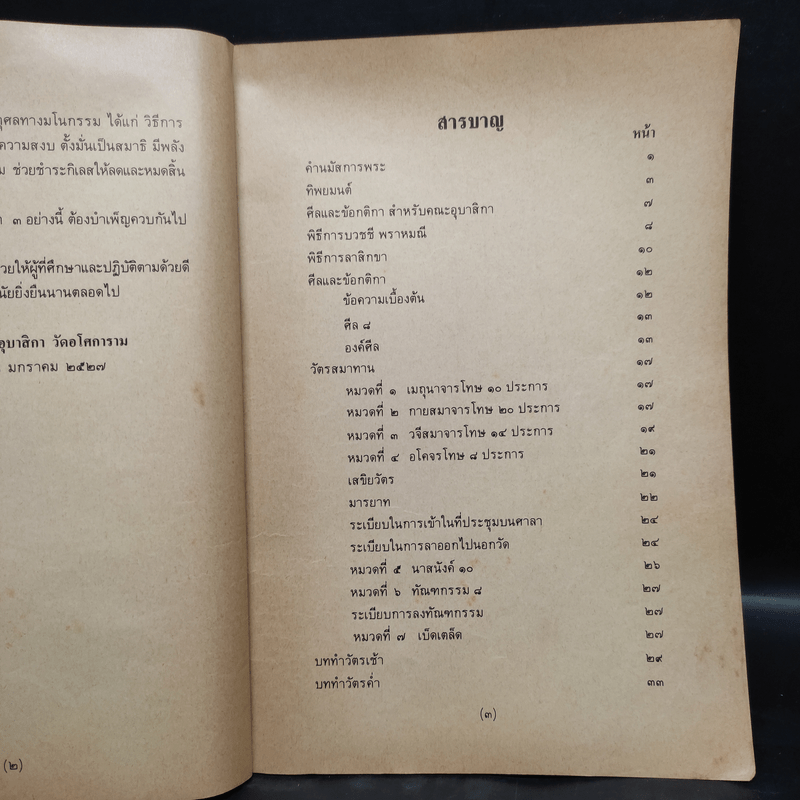 กุศลทางมโนกรรม ได้แก่ วิธีการ
ความสงบ ตั้งมั่นเป็นสมาธิ มีพลัง
ช่วยชำระกิเลสให้ลดและหมดสิ้น
๓ อย่างนี้ ต้องบำเพ็ญควบกันไป
วยให้ผู้ที่ศึกษาและปฏิบัติตามด้วยดี
นัยยิ่งยืนนานตลอดไป
อุบาสิกา วัดอโศการาม
มกราคม ๒๕๒๗
(๒)
สารบาญ
หน้า
คำนมัสการพระ ๑
ทิพยมนต์ ๓
ศีลและข้อกติกา สำหรับคณะอุบาสิกา ๗
พิธีการบวชชี พราหมณี ๘
พิธีการลาสิกขา ๑๐
ศีลและข้อกติกา ๑๒
ข้อความเบื้องต้น ๑๒
ศีล ๘ ๑๓
องค์ศีล ๑๓
วัตรสมาทาน ๑๗
หมวดที่ ๑ เมถุนาจารโทษ ๑๐ ประการ ๑๗
หมวดที่ ๒ กายสมาจารโทษ ๒๐ ประการ ๑๗
หมวดที่ ๓ วจีสมาจารโทษ ๑๔ ประการ ๑๙
หมวดที่ ๔ อโคจรโทษ ๘ ประการ ๒๑
เสขิยวัตร ๒๑
มารยาท ๒๒
ระเบียบในการเข้าในที่ประชุมบนศาลา ๒๔
ระเบียบในการลาออกไปนอกวัด ๒๔
หมวดที่ ๕ นาสนังค์ ๑๐ ๒๖
หมวดที่ ๖ ทัณฑกรรม ๘ ๒๗
ระเบียบการลงทัณฑกรรม ๒๗
หมวดที่ ๗ เบ็ดเตล็ด ๒๗
บททำวัตรเช้า ๒๙
บททำวัตรค่ำ ๓๓
(๓)